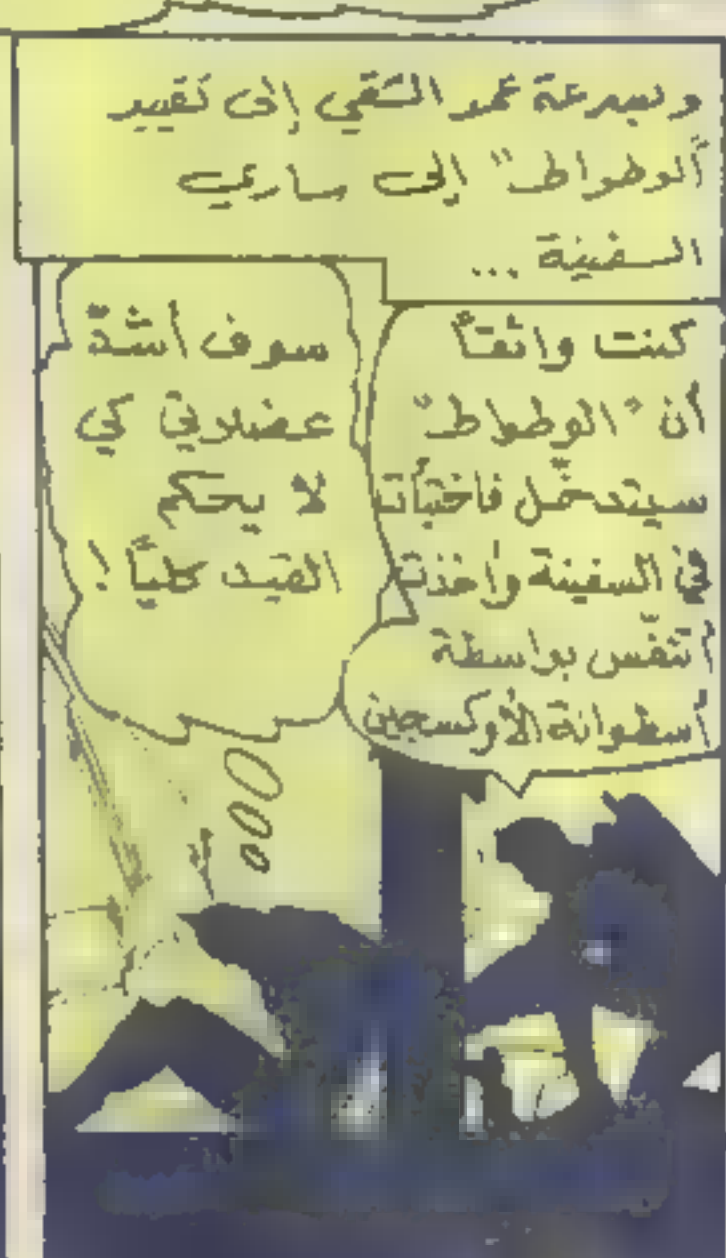 وبسرعة عمد الشقي إلى تقييد
"الوطواط" إلى ساري
السفينة ...
كنت واثقاً
أن "الوطواط"
سيتدخّل فاختبأت
في السفينة وأخذت
أتنفّس بواسطة
أسطوانة الأوكسجين
سوف أشدّ
عضلاتي كي
لا يحكم
القيد كلياً !